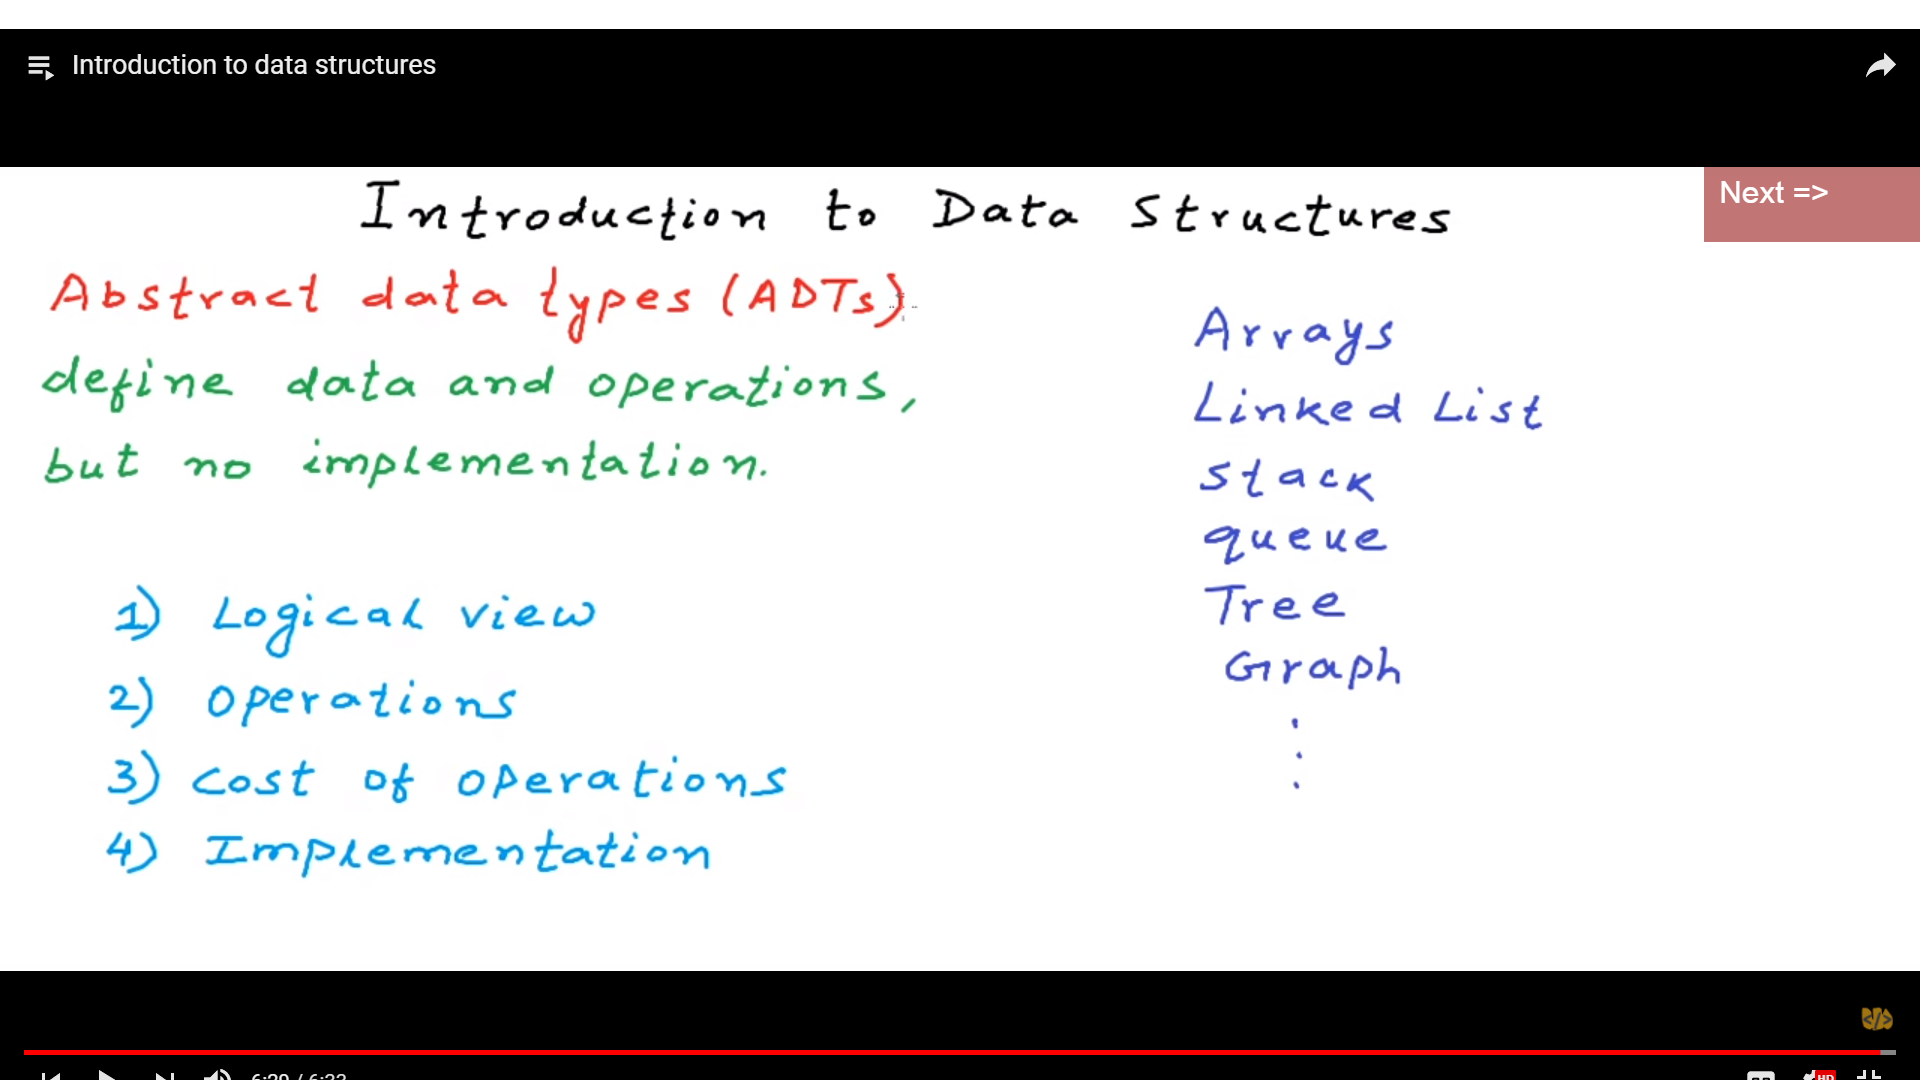 Introduction to data structures
Introduction to Data Structures
Next =>
Abstract data types (ADTs)
define data and operations,
but no implementation.
1) Logical view
2) operations
3) cost of operations
4) Implementation
Arrays
Linked List
Stack
queue
Tree
Graph
</>
6:29 / 6:33
HD